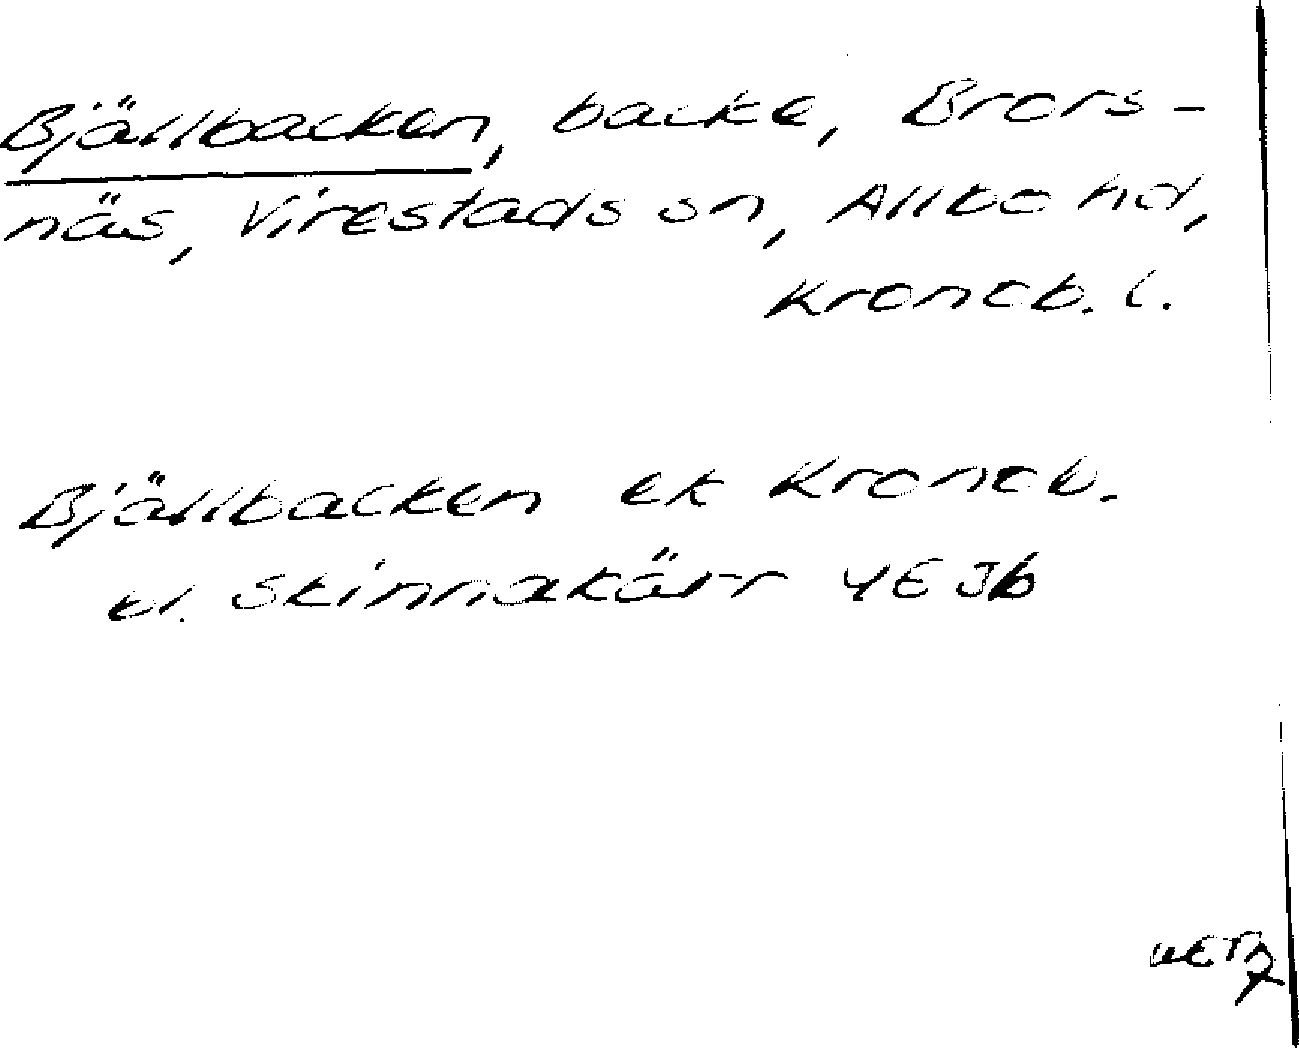 Bjällbacken, backe, Brors-
näs, Virestads sn, Allbo hd,
Kronob. l.
Bjällbacken ek Kronob.
bl. Skinnakärr 4E Jb